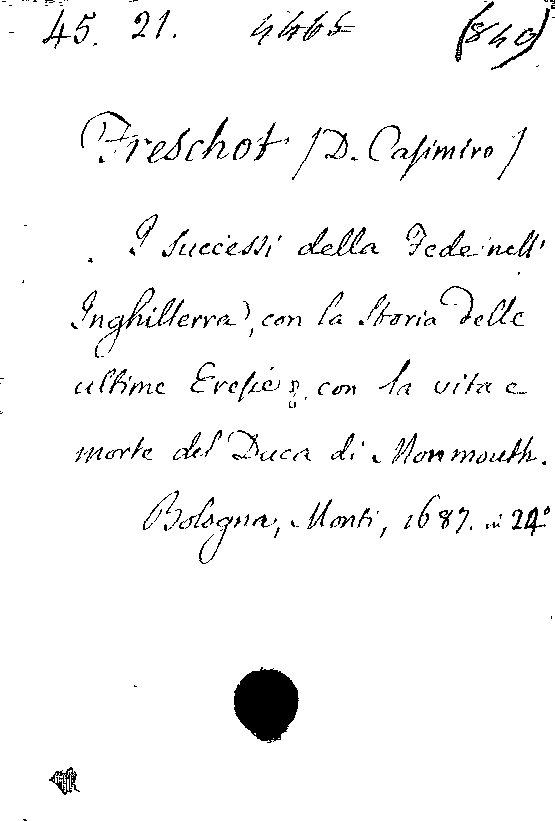 45. 21. 4465 (840)
Freschot /D. Casimiro/
I successi della Fede nell'
Inghilterra, con la Storia delle
ultime Eresie, con la vita e
morte del Duca di Monmouth.
Bologna, Monti, 1687. in 24°